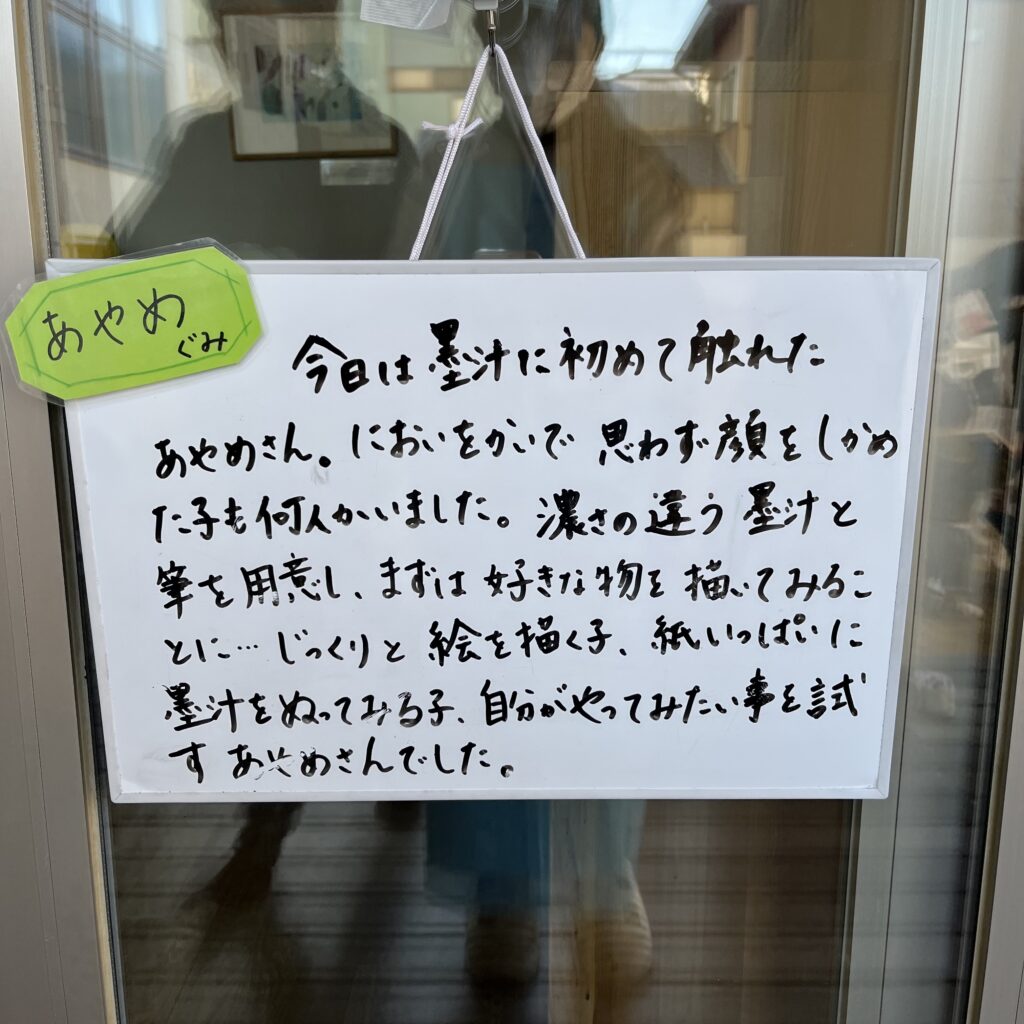 あやめ
ぐみ
今日は墨汁に初めて触れた
あやめさん。においをかいで 思わず顔をしかめ
た子も何人かいました。濃さの違う墨汁と
筆を用意し、まずは好きな物を描いてみるこ
とに…じっくりと絵を描く子、紙いっぱいに
墨汁をぬってみる子、自分がやってみたい事を試
すあやめさんでした。